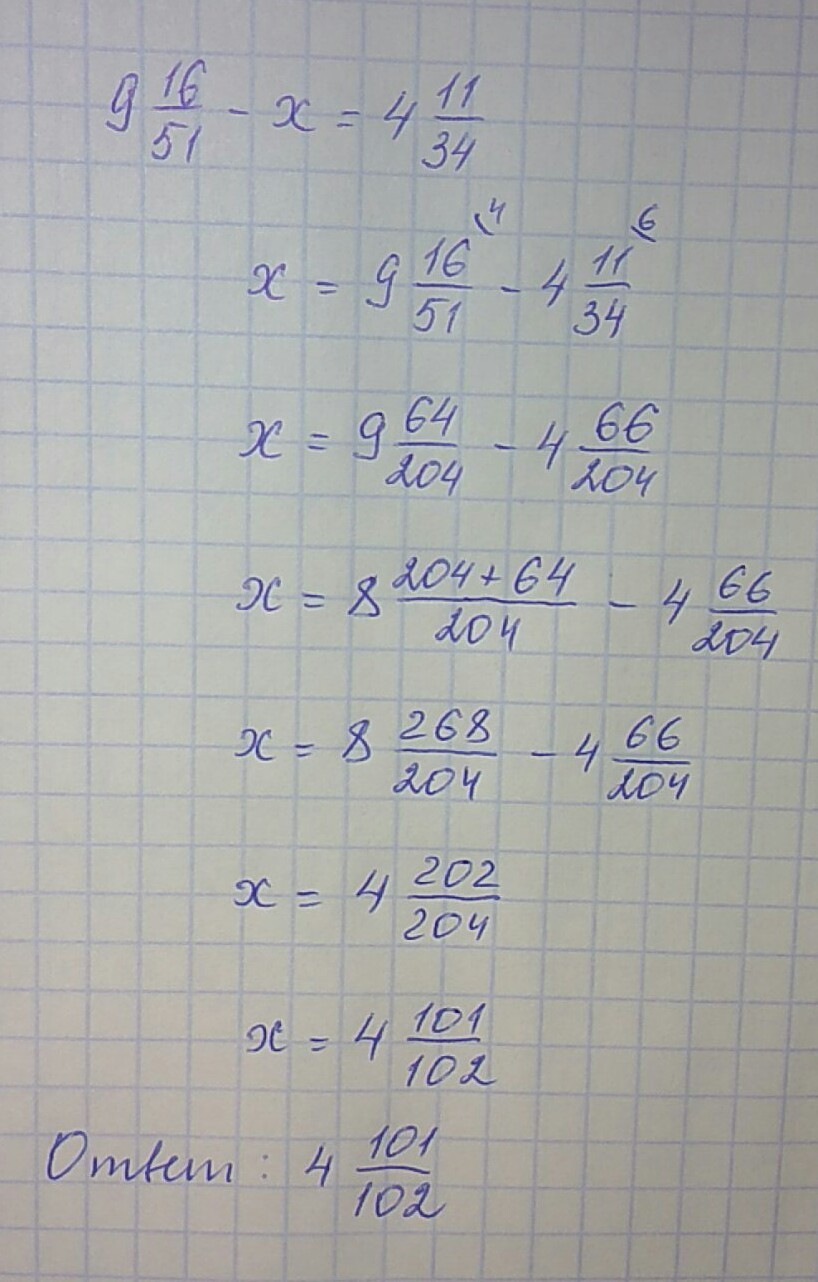 9 16/51 - x = 4 11/34
x = 9 16/51 \4 - 4 11/34 \6
x = 9 64/204 - 4 66/204
x = 8 204+64/204 - 4 66/204
x = 8 268/204 - 4 66/204
x = 4 202/204
x = 4 101/102
Ответ: 4 101/102